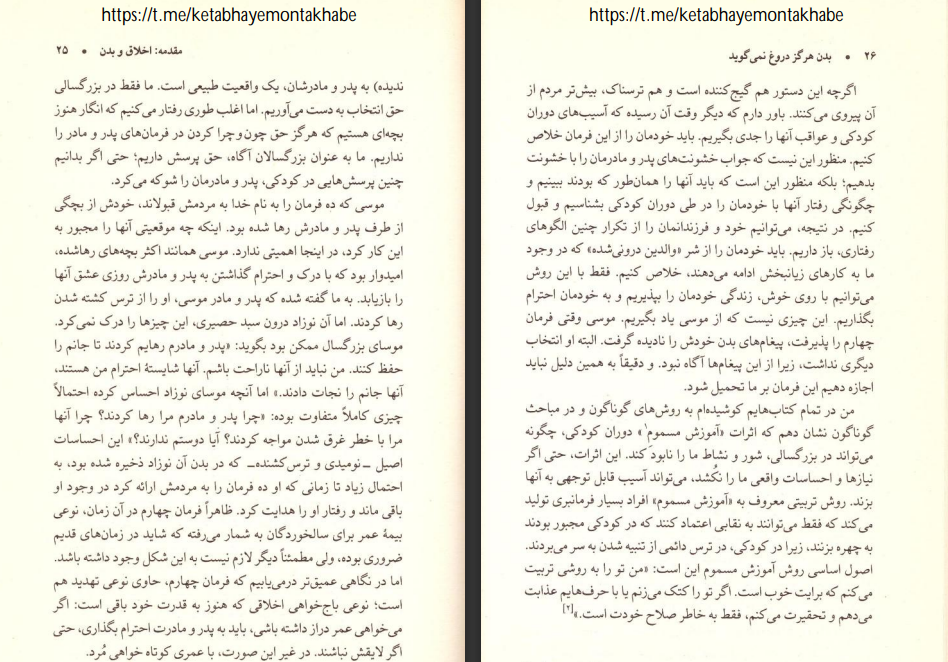 https://t.me/ketabhayemontakhabe
مقدمه: اخلاق و بدن • ۲۵
ندیده) به پدر و مادرشان، یک واقعیت طبیعی است. ما فقط در بزرگسالی
حق انتخاب به دست می‌آوریم. اما اغلب طوری رفتار می‌کنیم که انگار هنوز
بچه‌ای هستیم که هرگز حق چون‌وچرا کردن در فرمان‌های پدر و مادر را
نداریم. ما به عنوان بزرگسالان آگاه، حق پرسش داریم؛ حتی اگر بدانیم
چنین پرسش‌هایی در کودکی، پدر و مادرمان را شوکه می‌کرد.
موسی که ده فرمان را به نام خدا به مردمش قبولاند، خودش از بچگی
از طرف پدر و مادرش رها شده بود. اینکه چه موقعیتی آنها را مجبور به
این کار کرد، در اینجا اهمیتی ندارد. موسی همانند اکثر بچه‌های رهاشده،
امیدوار بود که با درک و احترام گذاشتن به پدر و مادرش روزی عشق آنها
را بازیابد. به ما گفته شده که پدر و مادر موسی، او را از ترس کشته شدن
رها کردند. اما آن نوزاد درون سبد حصیری، این چیزها را درک نمی‌کرد.
موسای بزرگسال ممکن بود بگوید: «پدر و مادرم رهایم کردند تا جانم را
حفظ کنند. من نباید از آنها ناراحت باشم. آنها شایستهٔ احترام من هستند،
آنها جانم را نجات دادند.» اما آنچه موسای نوزاد احساس کرده احتمالاً
چیزی کاملاً متفاوت بوده: «چرا پدر و مادرم مرا رها کردند؟ چرا آنها
مرا با خطر غرق شدن مواجه کردند؟ آیا دوستم ندارند؟» این احساسات
اصیل ـ نومیدی و ترس‌کشنده ـ که در بدن آن نوزاد ذخیره شده بود، به
احتمال زیاد تا زمانی که او ده فرمان را به مردمش ارائه کرد در وجود او
باقی ماند و رفتار او را هدایت کرد. ظاهراً فرمان چهارم در آن زمان، نوعی
بیمهٔ عمر برای سالخوردگان به شمار می‌رفته که شاید در زمان‌های قدیم
ضروری بوده، ولی مطمئناً دیگر لازم نیست به این شکل وجود داشته باشد.
اما در نگاهی عمیق‌تر درمی‌یابیم که فرمان چهارم، حاوی نوعی تهدید هم
است؛ نوعی باج‌خواهی اخلاقی که هنوز به قدرت خود باقی است: اگر
می‌خواهی عمر دراز داشته باشی، باید به پدر و مادرت احترام بگذاری، حتی
اگر لایقش نباشند. در غیر این صورت، با عمری کوتاه خواهی مُرد.
https://t.me/ketabhayemontakhabe
۲۶ • بدن هرگز دروغ نمی‌گوید
اگرچه این دستور هم گیج‌کننده است و هم ترسناک، بیش‌تر مردم از
آن پیروی می‌کنند. باور دارم که دیگر وقت آن رسیده که آسیب‌های دوران
کودکی و عواقب آنها را جدی بگیریم. باید خودمان را از این فرمان خلاص
کنیم. منظور این نیست که جواب خشونت‌های پدر و مادرمان را با خشونت
بدهیم؛ بلکه منظور این است که باید آنها را همان‌طور که بودند ببینیم و
چگونگی رفتار آنها با خودمان را در طی دوران کودکی بشناسیم و قبول
کنیم. در نتیجه، می‌توانیم خود و فرزندانمان را از تکرار چنین الگوهای
رفتاری، باز داریم. باید خودمان را از شر «والدین درونی‌شده» که در وجود
ما به کارهای زیانبخش ادامه می‌دهند، خلاص کنیم. فقط با این روش
می‌توانیم با روی خوش، زندگی خودمان را بپذیریم و به خودمان احترام
بگذاریم. این چیزی نیست که از موسی یاد بگیریم. موسی وقتی فرمان
چهارم را پذیرفت، پیغام‌های بدن خودش را نادیده گرفت. البته او انتخاب
دیگری نداشت، زیرا از این پیغام‌ها آگاه نبود. و دقیقاً به همین دلیل نباید
اجازه دهیم این فرمان بر ما تحمیل شود.
من در تمام کتاب‌هایم کوشیده‌ام به روش‌های گوناگون و در مباحث
گوناگون نشان دهم که اثرات «آموزش مسموم۱» دوران کودکی، چگونه
می‌تواند در بزرگسالی، شور و نشاط ما را نابود کند. این اثرات، حتی اگر
نیازها و احساسات واقعی ما را نکُشد، می‌تواند آسیب قابل توجهی به آنها
بزند. روش تربیتی معروف به «آموزش مسموم» افراد بسیار فرمانبری تولید
می‌کند که فقط می‌توانند به نقابی اعتماد کنند که در کودکی مجبور بودند
به چهره بزنند، زیرا در کودکی، در ترس دائمی از تنبیه شدن به سر می‌بردند.
اصول اساسی روش آموزش مسموم این است: «من تو را به روشی تربیت
می‌کنم که برایت خوب است. اگر تو را کتک می‌زنم یا با حرف‌هایم عذابت
می‌دهم و تحقیرت می‌کنم، فقط به خاطر صلاح خودت است.»[۲]